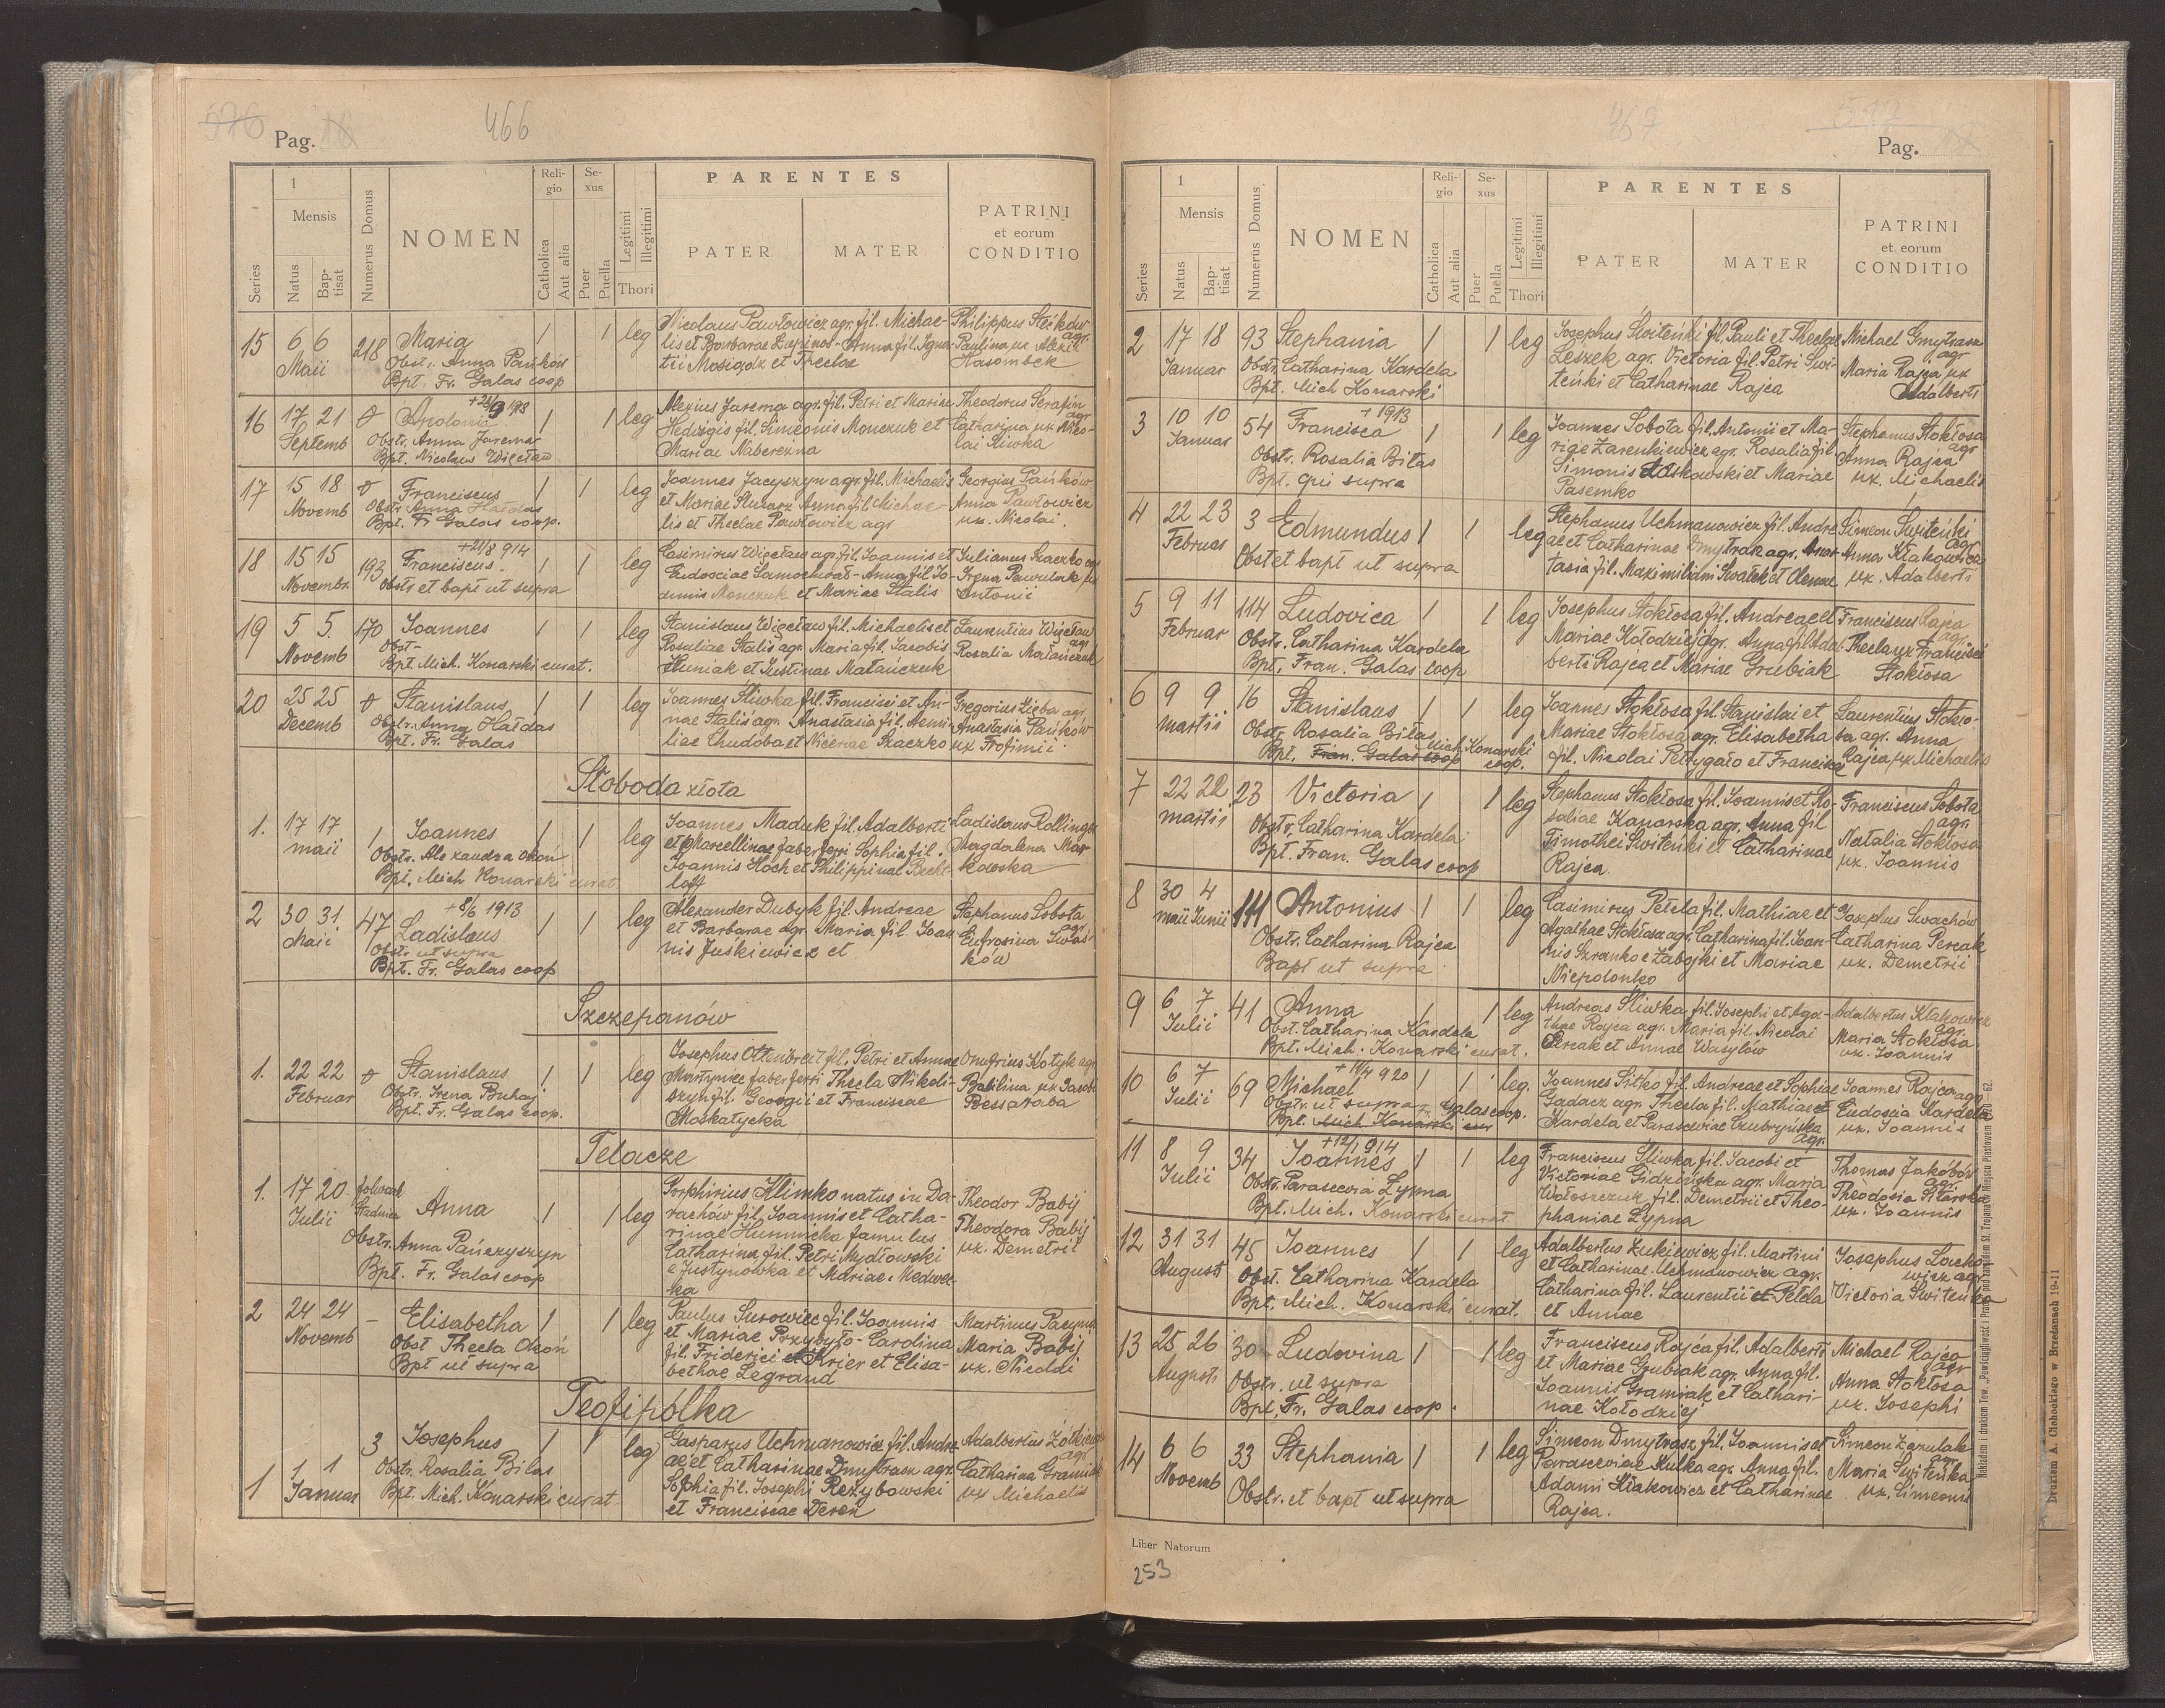 576
Pag.
466
Series
1
Mensis
Natus
Bap-
tisat
Numerus Domus
NOMEN
Reli-
gio
Catholica
Aut alia
Se-
xus
Puer
Puella
Legitimi
Illegitimi
Thori
PARENTES
PATER
MATER
PATRINI
et eorum
CONDITIO
15 6 6 Maii 218 Maria 1 1 leg
Obst. Anna Pańków
Bpt. Fr. Galas coop
Nicolaus Pawłowicz agr. fil. Michae-
lis et Barbarae - Anna fil. Igna-
tii et Theclae
Philippus
agr.
Paulina ux Alexii
Hasombek
16 17 21 Septemb Apolonia 1 1 leg
Obstr. Anna Jarema
Bpt. Nicolaus Więcław
Alexius Jarema agr. fil. Petri et Mariae
Hedvigis fil. Simeonis Monczuk et
Mariae Naberezna
Theodorus Serafin
agr
Catharina ux Nico-
lai Śliwka
17 15 18 Novemb Franciscus 1 1 leg
Obstr Anna Hałdas
Bpt. Fr Galas coop.
Joannes Jacyszyn agr. fil. Michaelis
et Mariae Anna fil. Michae-
lis et Theclae Pawłowicz agr
Georgius Pańków
Anna Pawłowicz
ux. Nicolai.
18 15 15 Novembr. 193 Franciscus 1 1 leg
+21/8 914
Obstr et bapt ut supra
Casimirus Więcław agr. fil. Joannis et
Eudosciae - Anna fil. Jo-
annis Monczuk et Mariae Stalis
Julianus Szaczko
Irena Pawulak ux
Antonii
19 5 5. Novemb 170 Joannes 1 1 leg
Obst-
Bpt. Mich. Konarski curat.
Stanislaus Więcław fil. Michaelis et
Rosaliae Stalis agr. Maria fil. Jacobis
et Justinae Małańczuk
Laurentius Więcław
agr
Rosalia Małańczuk
20 25 25 Decemb Stanislaus 1 1 leg
Obstr. Anna Hałdas
Bpt. Fr. Galas
Joannes Śliwka fil. Francisci et An-
nae Staliś agr. Anastasia fil. Aemi-
liae Chudoba et Nicenae Szaczko
Gregorius Zięba agr
Anastasia Pańków
ux Trofimii
Słoboda złota
1. 17 17 maii 1 Joannes 1 1 leg
Obstr. Alexandra Okoń
Bpt. Mich Konarski curat
Joannes Maduk fil. Adalberti
et Marcellinae faber ferri Sophia fil.
Joannis Hoch et Philippinae Becht-
loff
Ladislaus Rollinger
Magdalena Mar-
kowska
2 30 31 Maii 47 Ladislaus 1 1 leg
+8/6 1913
Obstr ut supra
Bpt. Fr. Galas coop
Alexander Dubyk fil. Andreae
et Barbarae agr. Maria fil Joan-
nis Juśkiewicz et
Stephanus Sobota
agr
Eufrosina Swaś-
ków
Szczepanów
1. 22 22 Februar Stanislaus 1 1 leg
Obstr. Irena Buhaj
Bpt. Fr. Galas coop.
Josephus Ottenbreit fil. Petri et Annae
Martyniec faber ferri Thecla Nikoli-
szyn fil. Georgii et Franciscae
Moskałycka
Onufrius Kotyk agr
Babilina ux Jacobi
Bessaraba
Telacze
1. 17 20 Julii folwark Sadnica Anna 1 1 leg
Obstr. Anna Pańczyszyn
Bpt. Fr. Galas coop
Porphirius Klimko natus in Da-
rachów fil. Joannis et Catha-
rinae Humnicka famulus
Catharina fil. Petri Mydłowski
e Justynówka et Mariae Medwec-
ka
Theodor Babij
Theodora Babij
ux. Demetrii
2 24 24 Novemb - Elisabetha 1 1 leg
Obst Thecla Okoń
Bpt ut supra
Paulus Surowiec fil. Joannis
et Mariae Przybyło - Carolina
fil. Friderici et Krier et Elisa-
bethae Legrand
Martinus
Maria Babij
ux. Nicolai
Teofipólka
1 1 1 Januar 3 Josephus 1 1 leg
Obstr. Rosalia Biłas
Bpt. Mich. Konarski curat
Gasparus Uchmanowicz fil. Andre-
ae et Catharinae Dmytrasz agr.
Sophia fil. Josephi Rezybowski
et Franciscae Dereń
Adalbertus
agr.
Catharina Gramiak
ux Michaelis
467
Pag.
Series
1
Mensis
Natus
Bap-
tisat
Numerus Domus
NOMEN
Reli-
gio
Catholica
Aut alia
Se-
xus
Puer
Puella
Legitimi
Illegitimi
Thori
PARENTES
PATER
MATER
PATRINI
et eorum
CONDITIO
2 17 18 Januar 93 Stephania 1 1 leg
Obstr. Catharina Kardela
Bpt. Mich Konarski
Josephus Świteński fil. Pauli et Theclae
Leszek agr. Victoria fil. Petri Świ-
teński et Catharinae Rajca
Michael Gmytrasz
agr
Maria Rajca ux
Adalberti
3 10 10 Januar 54 Francisca 1 1 leg
+ 1913
Obstr. Rosalia Biłas
Bpt. qui supra
Joannes Sobota fil. Antonii et Ma-
riae Zarenkiewicz agr. Rosalia fil
Simonis et Mariae
Pasemko
Stephanus Stokłosa
agr
Anna Rajca
ux. Michaelis
4 22 23 Februar 3 Edmundus 1 1 leg
Obst et bapt ut supra
Stephanus Uchmanowicz fil. Andre-
ae et Catharinae Dmytrasz agr. Anas-
tasia fil. Maximiliani Swałek et Olenae
Simeon Świteński
agr
Anna Kłakowicz
ux. Adalberti
5 9 11 Februar 114 Ludovica 1 1 leg
Obstr. Catharina Kardela
Bpt. Fran. Galas coop
Josephus Stokłosa fil. Andreae et
Mariae Kołodziej agr. Anna fil. Adal-
berti Rajca et Mariae Grubiak
Franciscus Rajca
agr.
Thecla ux Francisci
Stokłosa
6 9 9 martii 16 Stanislaus 1 1 leg
Obstr. Rosalia Biłas
Bpt. Fran. Galas coop Mich Konarski
coop.
Joannes Stokłosa fil. Stanislai et
Mariae Stokłosa agr. Elisabetha
fil. Nicolai Petrygało et Franciscae
Laurentius Stokło-
sa agr. Anna
Rajca ux Michaelis
7 22 22 martii 23 Victoria 1 1 leg
Obstr. Catharina Kardela
Bpt. Fran. Galas coop
Stephanus Stokłosa fil. Joannis et Ro-
saliae Konarska agr. Anna fil
Timothei Świteński et Catharinae
Rajca
Franciscus Sobota
agr.
Natalia Stokłosa
ux. Joannis
8 30 maii 4 Junii 111 Antonius 1 1 leg
Obstr. Catharina Rajca
Bapt ut supra
Casimirus Pełela fil. Mathiae et
Agathae Stokłosa agr. Catharina fil. Joan-
nis Szranko e Zabojki et Mariae
Niepolonko
Josephus Swachów
Catharina Percak
ux. Demetrii
9 6 7 Julii 41 Anna 1 1 leg
Obst. Catharina Kardela
Bpt. Mich. Konarski curat.
Andreas Śliwka fil. Josephi et Aga-
thae Rajca agr. Maria fil. Nicolai
Percak et Annae Wasylów
Adalbertus Kłakowicz
agr.
Maria Stokłosa
ux. Joannis
10 6 7 Julii 69 Michael 1 1 leg.
920
Obstr. ut supra
Bpt. Mich Konarski cur Fr. Galas coop.
Joannes Sitko fil. Andreae et Sophiae
Gadacz agr. Thecla fil. Mathiae et
Kardela et Parasceviae Czubryńska
agr.
Joannes Rajca agr
Eudoscia Kardela
ux. Joannis
11 8 9 Julii 34 Joannes 1 1 leg
+12/1 914
Obstr. Parascevia Łypna
Bpt. Mich. Konarski curat
Franciscus Śliwka fil. Jacobi et
Victoriae Gidzińska agr. Maria
Wołoszczuk fil. Demetrii et Theo-
phaniae Łypna
Thomas Jakóbów
agr.
Theodosia
ux. Joannis
12 31 31 August 45 Joannes 1 1 leg
Obst. Catharina Kardela
Bpt. Mich. Konarski curat.
Adalbertus Żukiewicz fil. Martini
et Catharinae Uchmanowicz agr.
Catharina fil. Laurentii et Pełda
et Annae
Josephus Lacho-
wicz agr
Victoria Świteńka
13 25 26 Augusti 30 Ludovina 1 1 leg
Obstr. ut supra
Bpt. Fr. Galas coop.
Franciscus Rajca fil. Adalberti
et Mariae Grubiak agr. Anna fil.
Joannis Gramiak et Cathari-
nae Kołodziej
Michael Rajca
agr
Anna Stokłosa
ux. Josephi
14 6 6 Novemb 33 Stephania 1 1 leg
Obstr. et bapt ut supra
Simeon Dmytrasz fil. Joannis et
Parasceviae Kulka agr. Anna fil.
Adami Kłakowicz et Catharinae
Rajca.
Simeon Zazulak
agr.
Maria Świteńka
ux. Simeonis
Liber Natorum
253
Nakład i drukiem Tow. „Powściągliwość i Praca" pod zarządem St. Trojana w Miejscu Piastowem 1920 – 62.
Drukiem A. Cichockiego w Brzeżanach 19-11